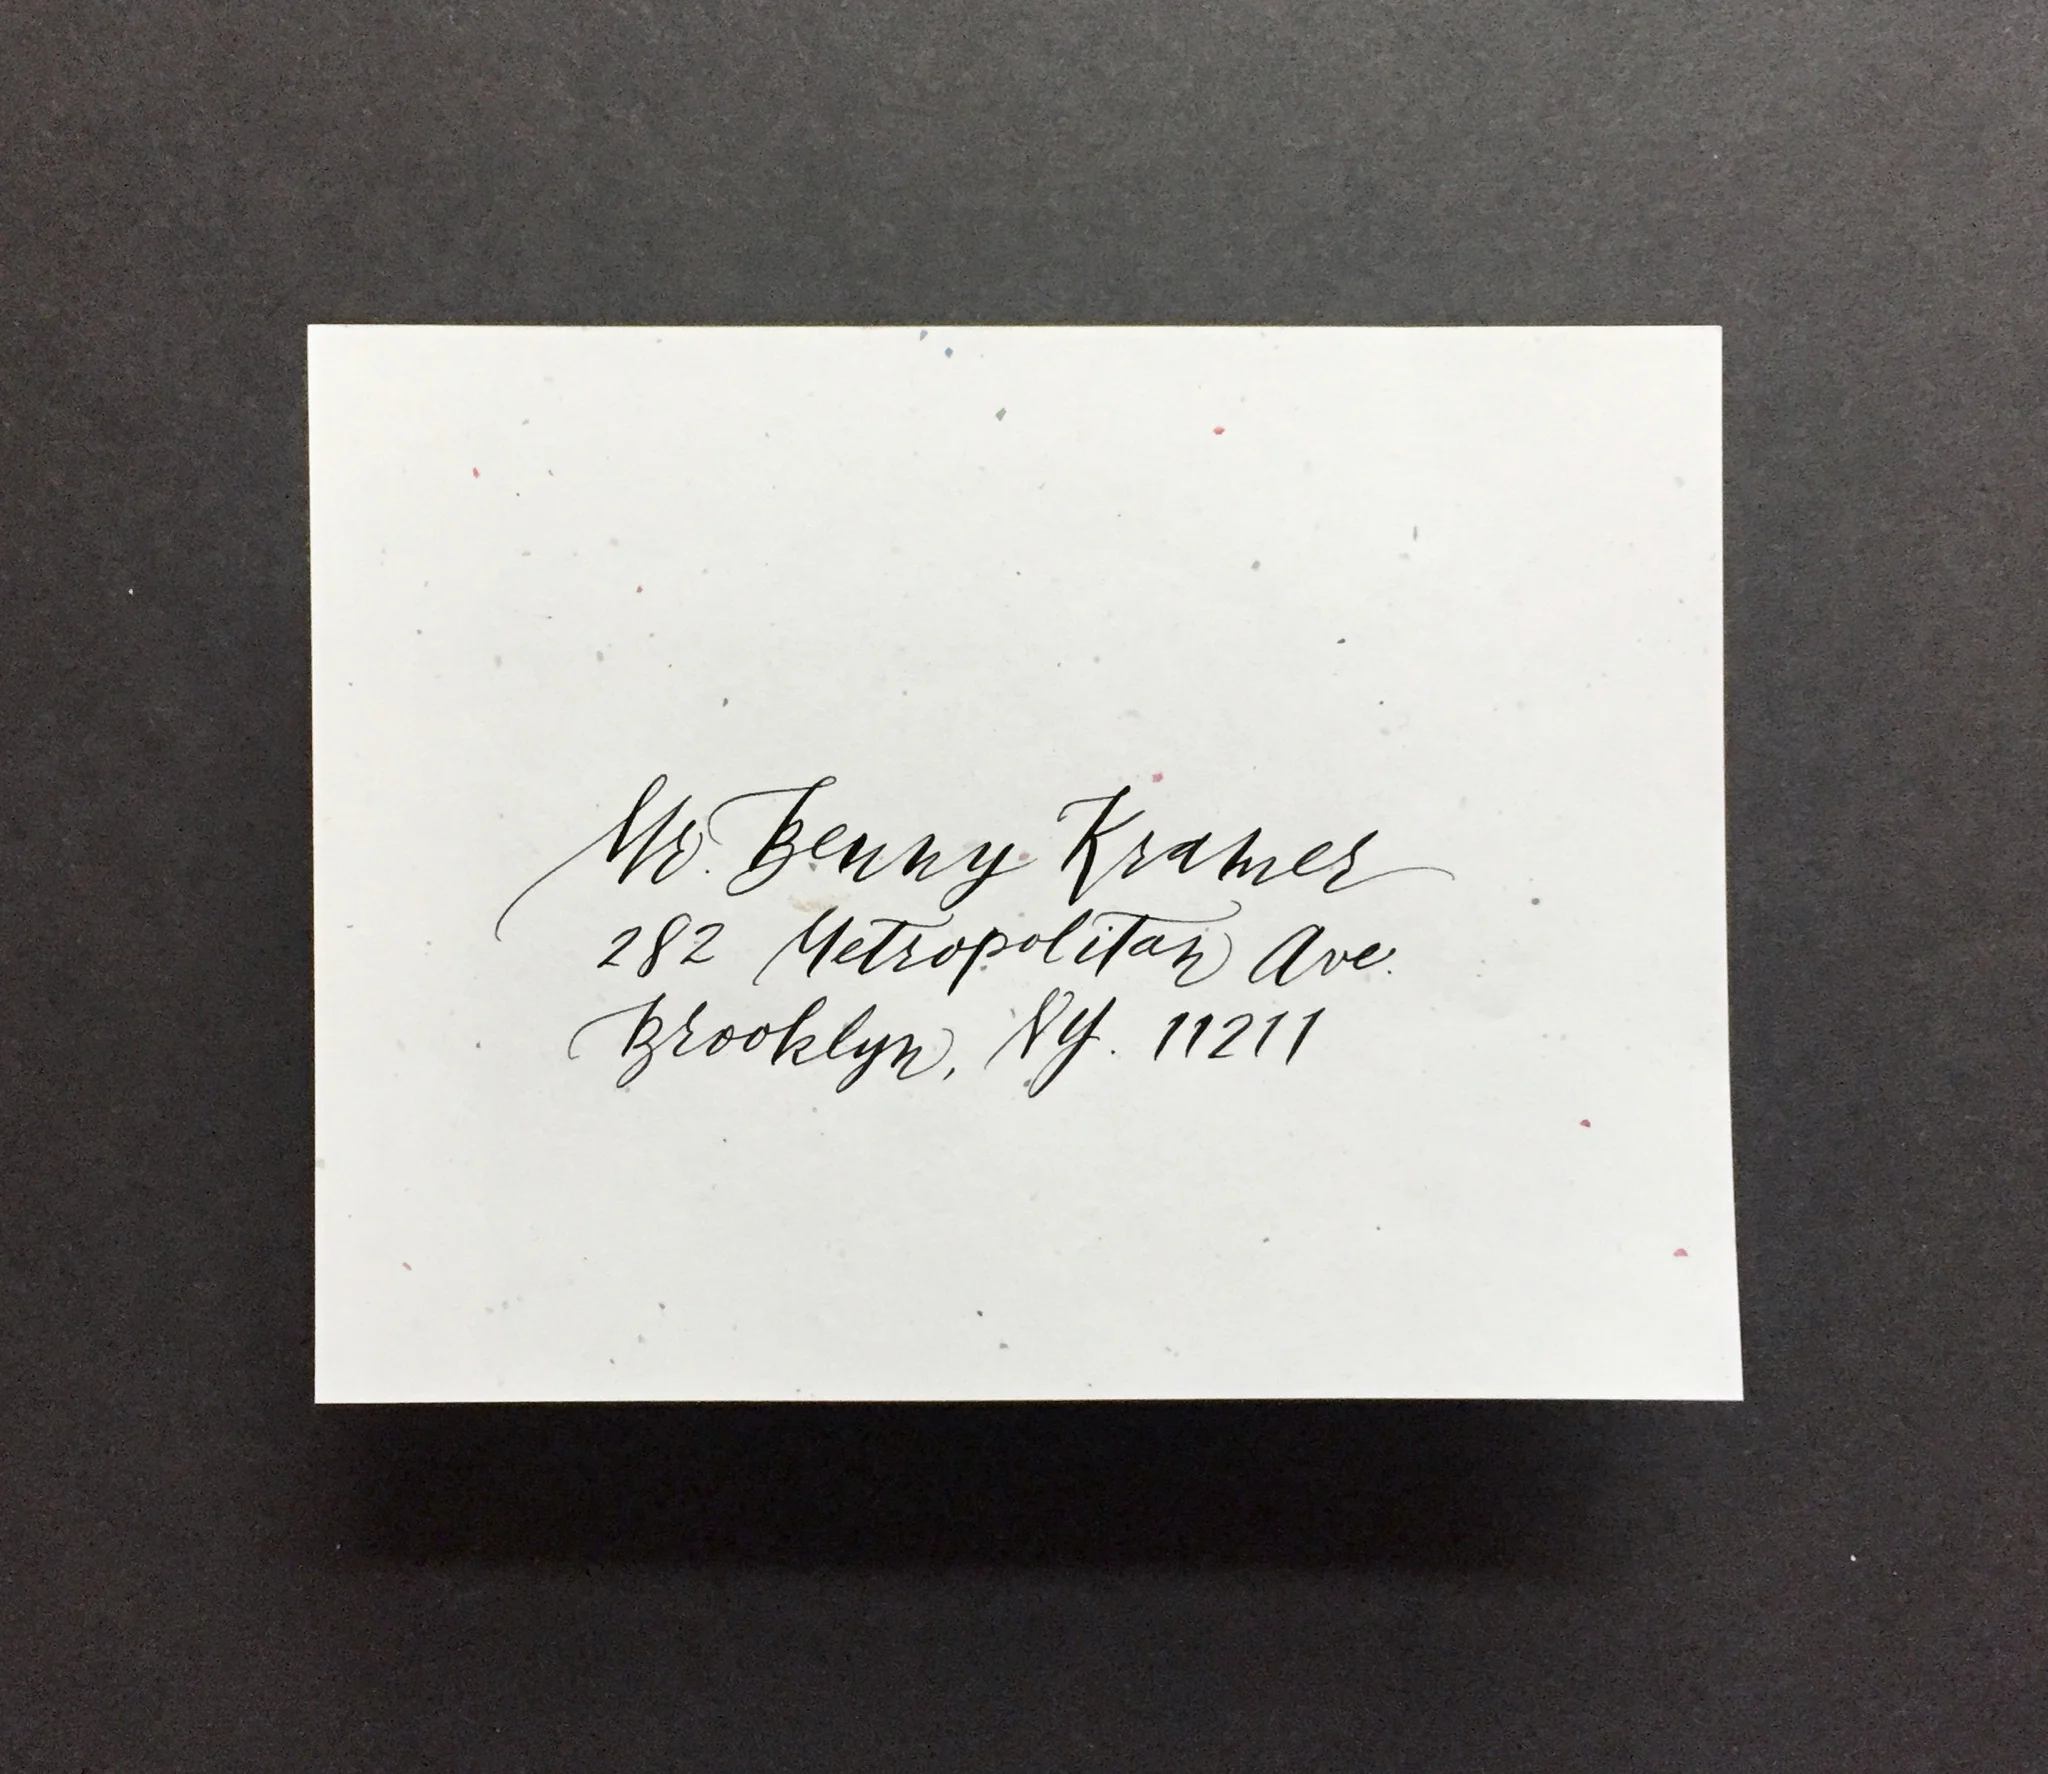 Mr. Benny Kramer
282 Metropolitan Ave.
Brooklyn, NY. 11211